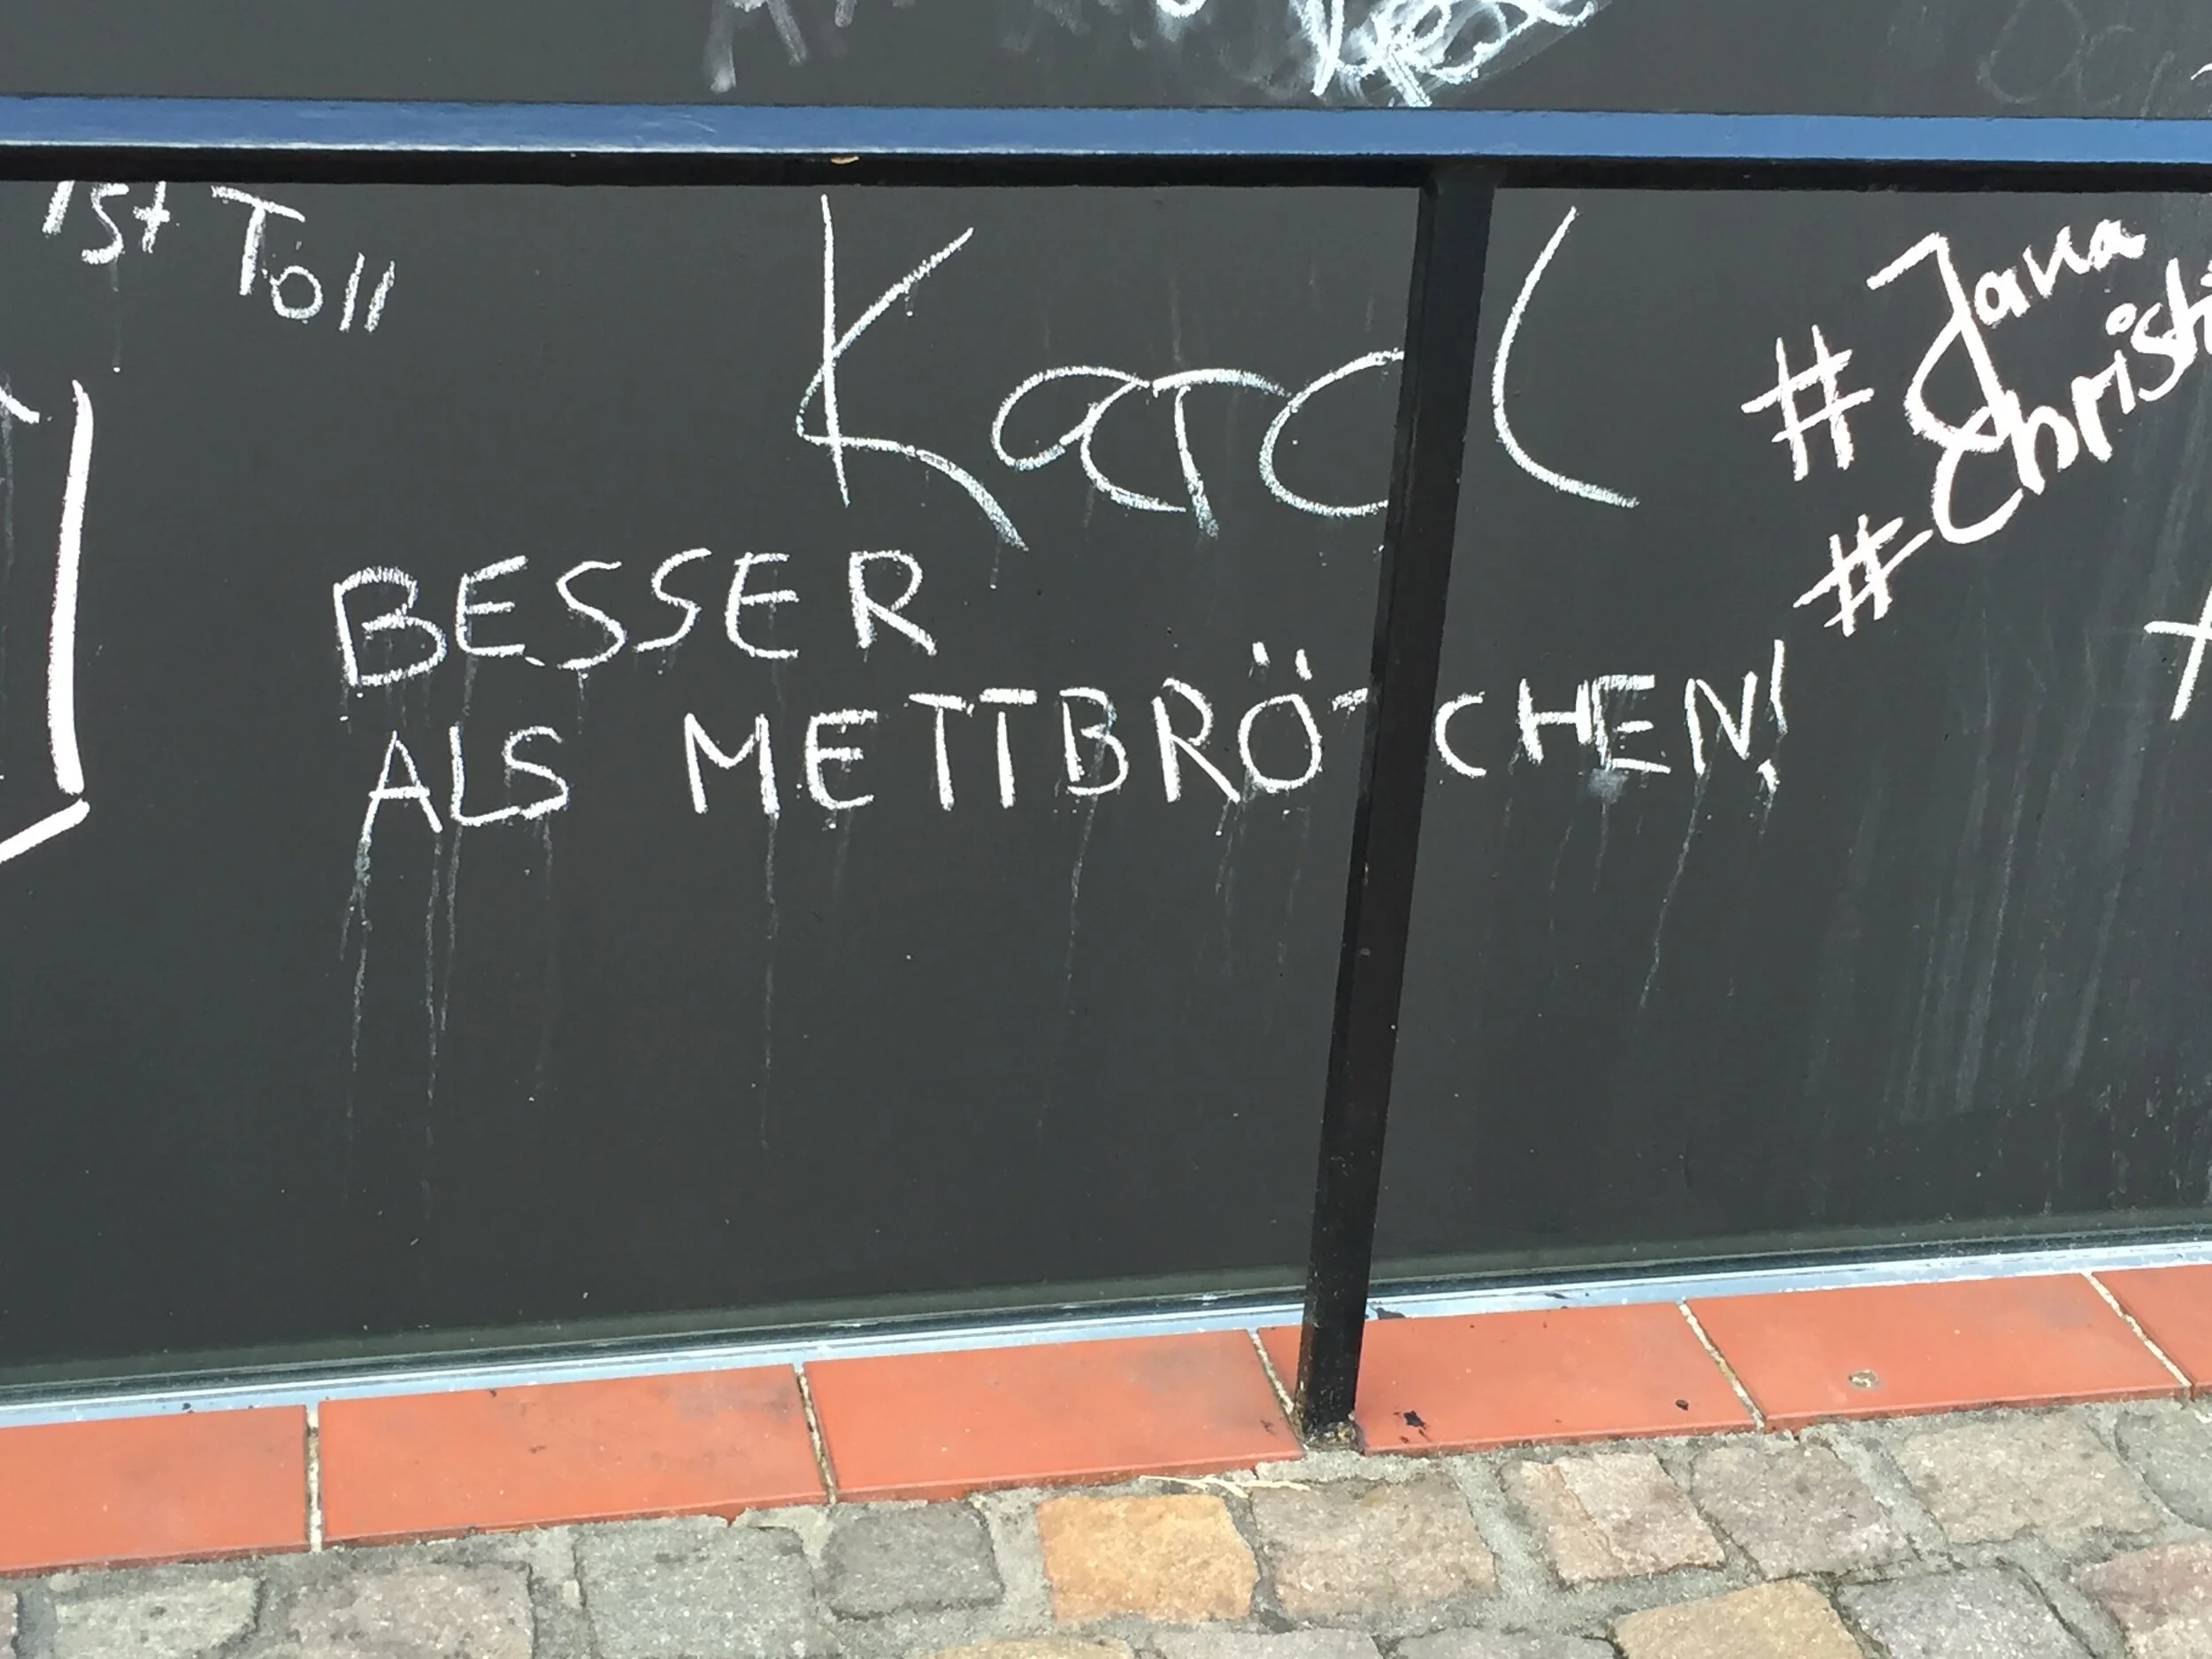 ist Toll
Karol
BESSER
ALS METTBRÖTCHEN!
# Jana
#